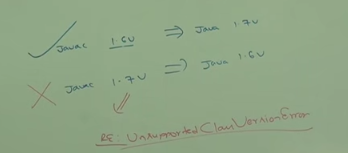 ✓ Javac 1.6V ⇒ Java 1.7V
✗ Javac 1.7V ⇒ Java 1.6V
RE: UnsupportedClassVersionError